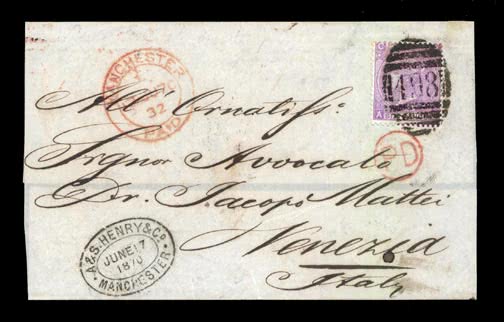 MANCHESTER
32
PAID
C
498
A
PD
All' Ornatifs:
Signor Avvocato
Dr. Jacopo Mattei
Venezia
Italy
A & S. HENRY & Co.
JUNE 17
1870
MANCHESTER